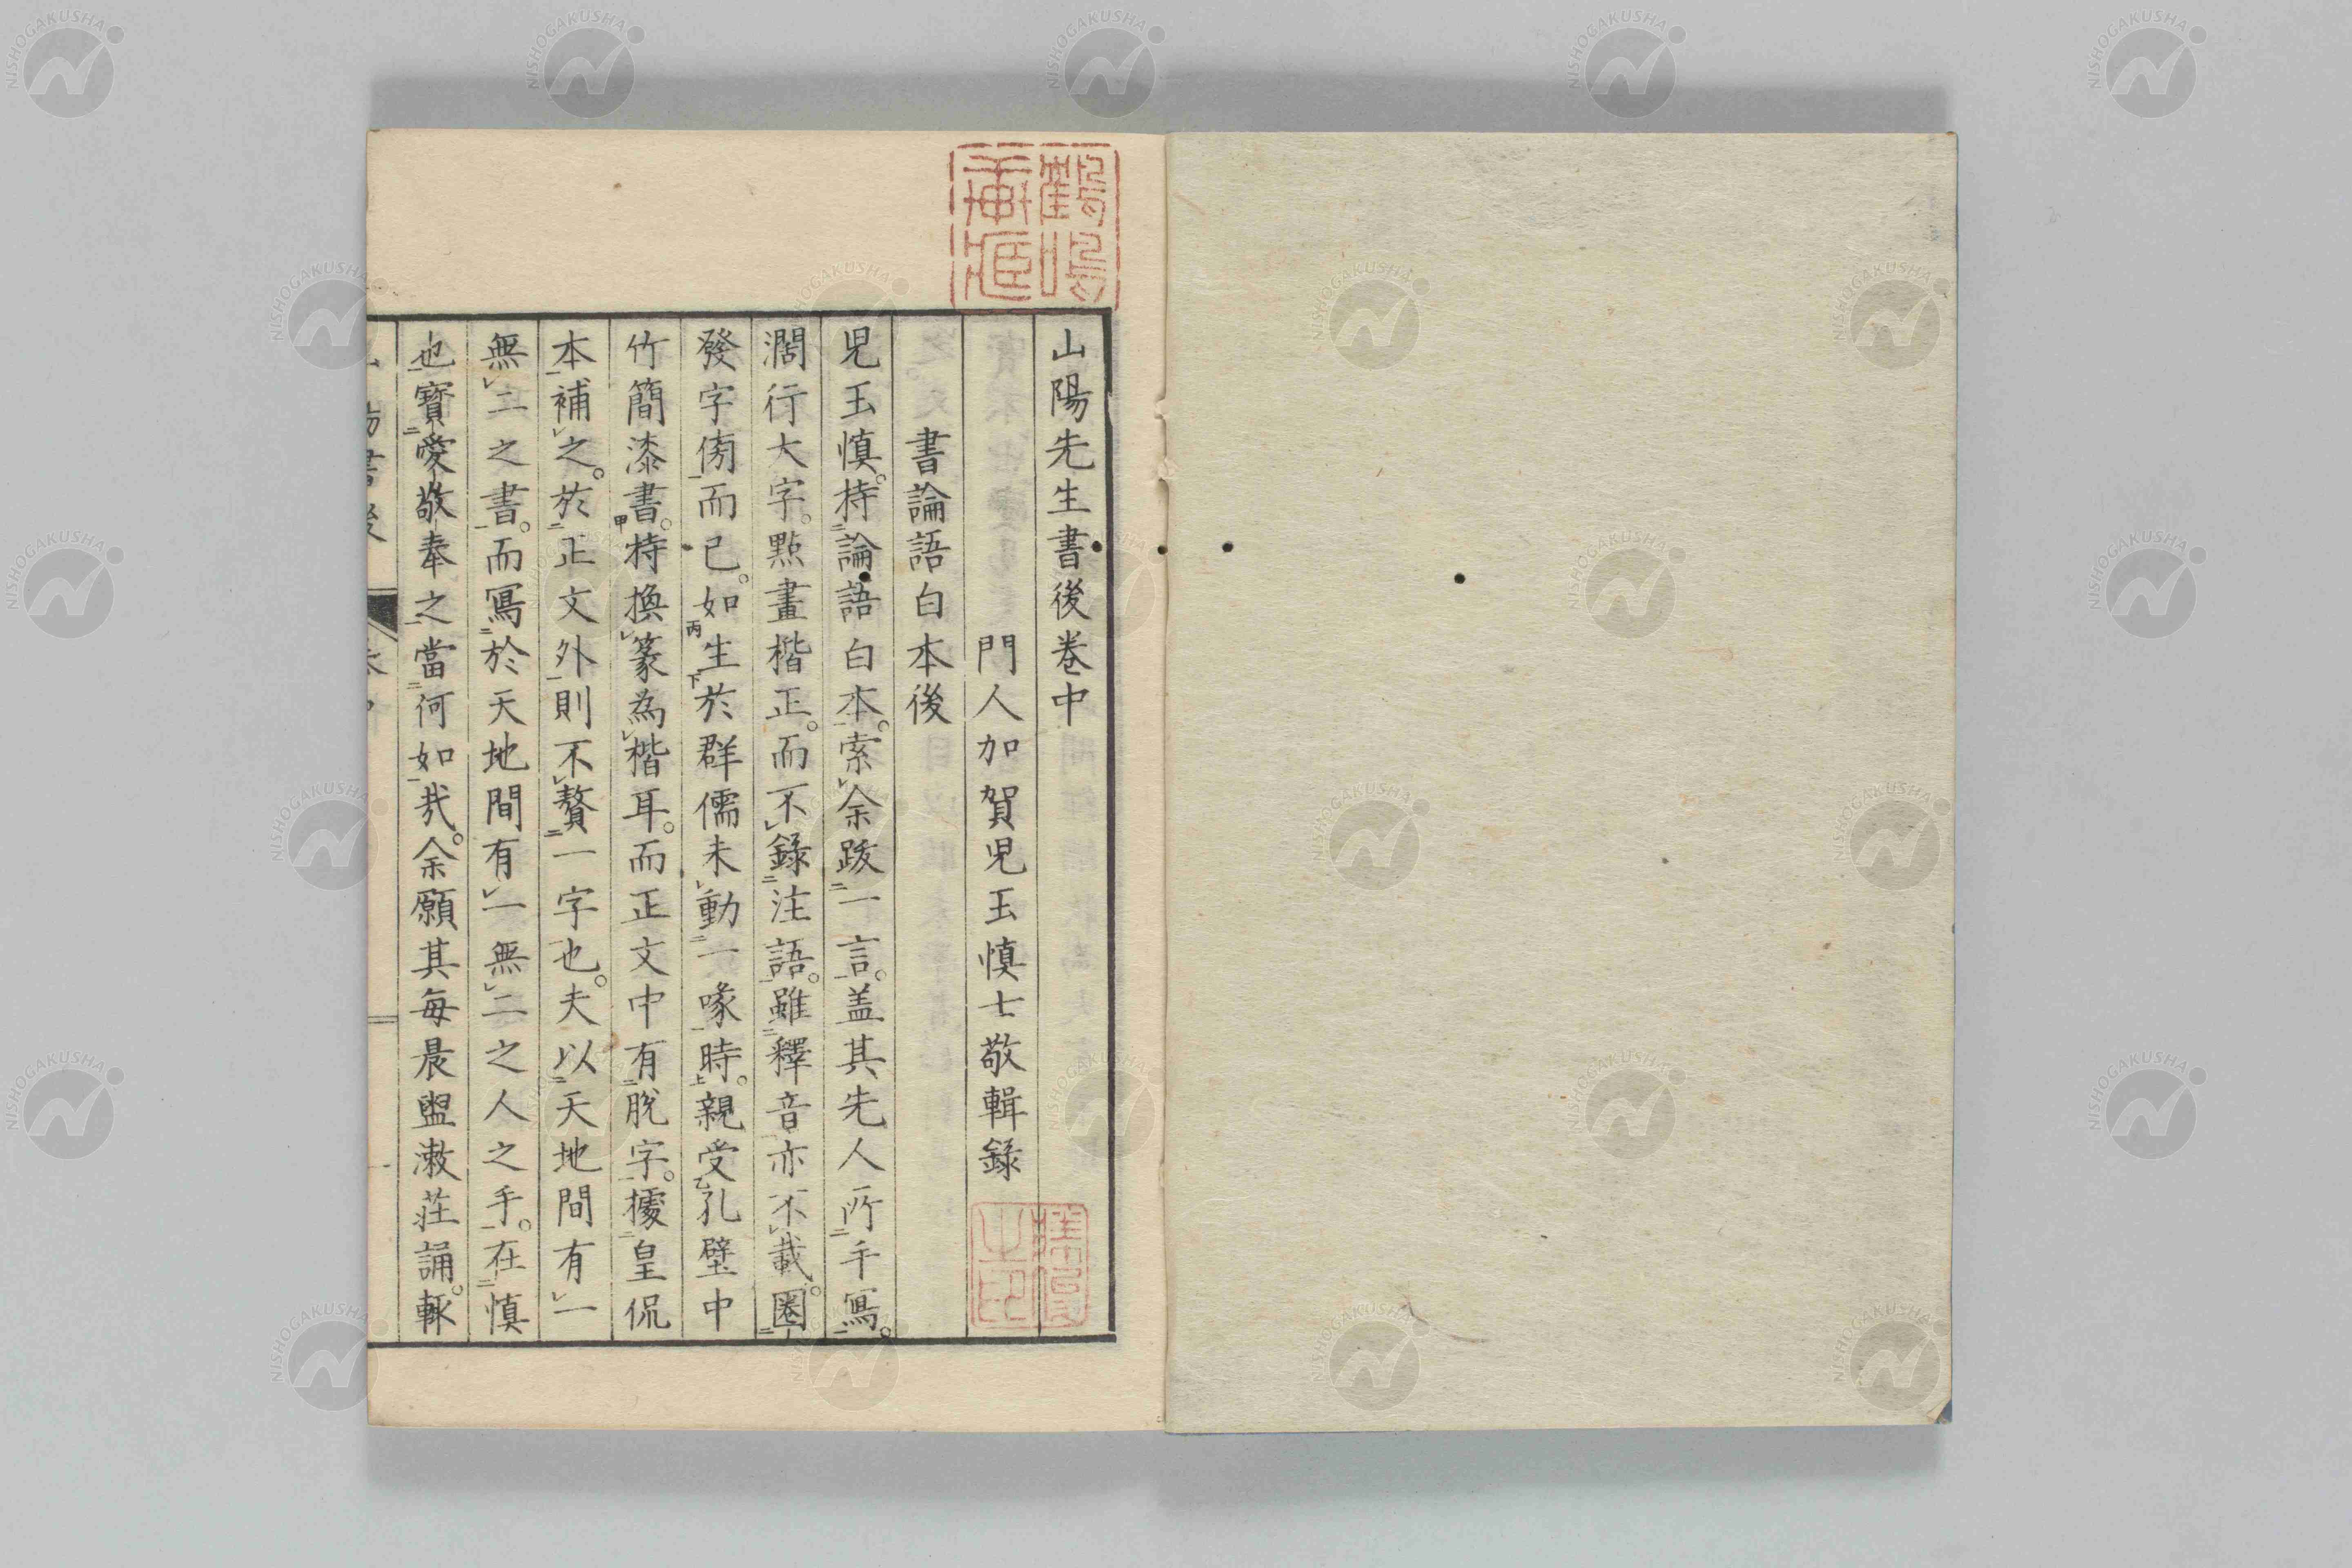 山陽先生書後卷中
門人加賀児玉慎士敬輯錄
書論語白本後
児玉慎。持論語白本。索余跋一言。盖其先人所手寫。
濶行大字。點畫楷正。而不錄注語。雖釋音亦不載。圈
發字傍而已。如生於群儒未動一喙時。親受孔壁中
竹簡漆書。特換篆為楷耳。而正文中有脫字。據皇侃
本補之。於正文外則不贅一字也。夫以天地間有一
無二之書。而寫於天地間有一無二之人之手。在慎
也寶愛敬奉之當何如哉。余願其每晨盥漱莊誦。輙
NISHOGAKUSHA